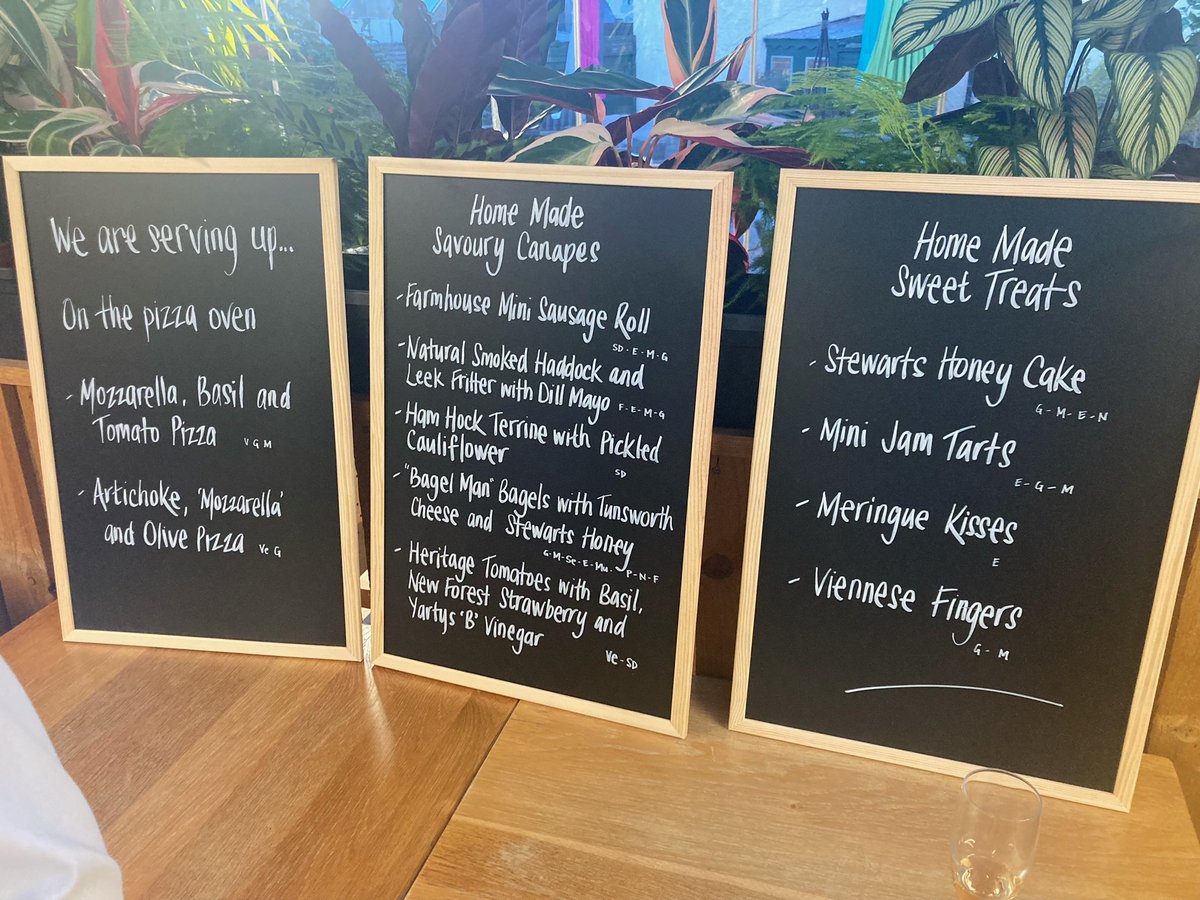 We are serving up...
On the pizza oven
- Mozzarella, Basil and
Tomato Pizza V G M
- Artichoke, 'Mozzarella'
and Olive Pizza Ve G
Home Made
Savoury Canapes
- Farmhouse Mini Sausage Roll
SD - E - M - G
- Natural Smoked Haddock and
Leek Fritter with Dill Mayo F - E - M - G
- Ham Hock Terrine with Pickled
Cauliflower SD
- "Bagel Man" Bagels with Tunsworth
Cheese and Stewarts Honey
G - M - Se - E - Mu. P - N - F
- Heritage Tomatoes with Basil,
New Forest Strawberry and
Yartys 'B' Vinegar
Ve - SD
Home Made
Sweet Treats
- Stewarts Honey Cake
G - M - E - N
- Mini Jam Tarts
E - G - M
- Meringue Kisses
E
- Viennese Fingers
G - M